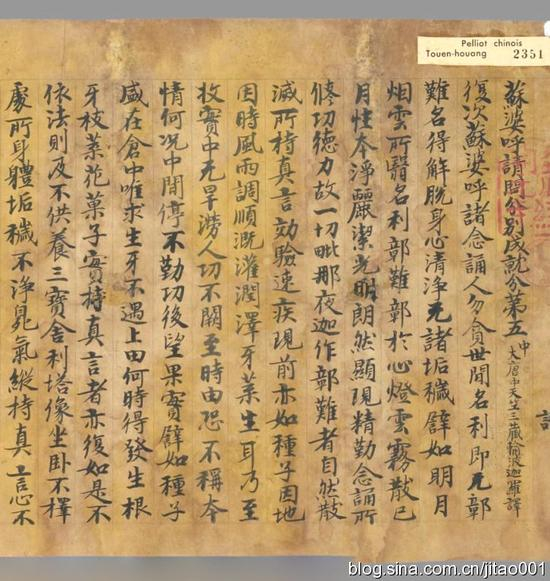 Pelliot chinois
Touen-houang 2351
蘇婆呼請問分別成就分第五中 大唐中天竺三藏輸波迦羅譯
復次蘇婆呼諸念誦人勿貪世間名利即无鄣
難名得解脫身心清淨无諸垢穢譬如明月
烟雲所翳名利鄣難鄣於心燈雲霧散已
月性本淨麗潔光明朗然顯現精勤念誦所
修功德力故一切毗那夜迦作鄣難者自然散
滅所持真言効驗速疾現前亦如種子因地
因時風雨調順溉灌潤澤牙葉生耳乃至
收實中无旱澇人切不闕至時由恐不稱本
情何況中間停不勤功後望果實譬如種子
盛在倉中唯求生牙不遇上田何時得發生根
牙枝葉花菓子實持真言者亦復如是不
依法則及不供養三寶舍利塔像坐卧不擇
處所身體垢穢不淨臰氣縱持真言心不
blog.sina.com.cn/jitao001